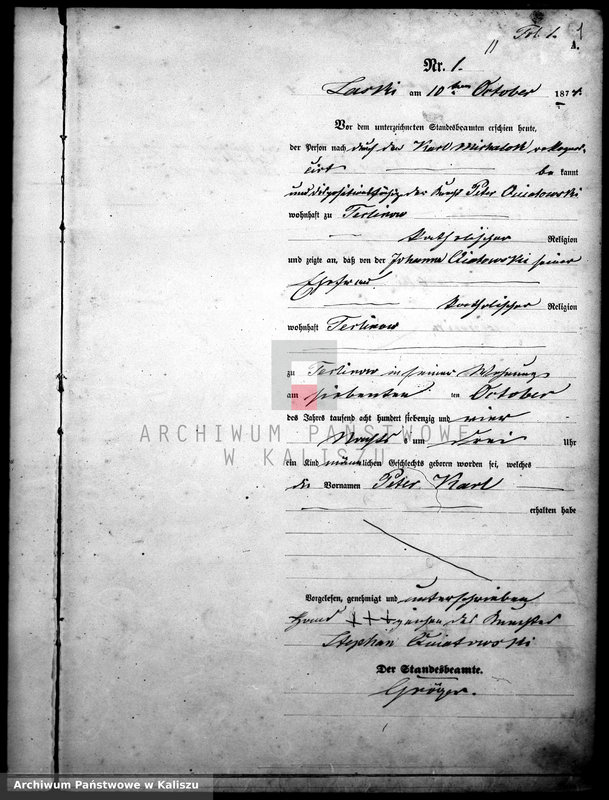 Fol. 1. 1
A.
Nr. 1.
Laski am 10ten October 1874.
Vor dem unterzeichneten Standesbeamten erschien heute,
der Person nach durch den Karl Michalak rekognos-
cirt bekannt
und dispositionsfähig der Knecht Peter Quiatowski
wohnhaft zu Terlinow
katholischer Religion
und zeigte an, daß von der Johanna Quiatowski seiner
Ehefrau
katholischer Religion
wohnhaft Terlinow
zu Terlinow in seiner Wohnung
am siebenten ten October
des Jahres tausend acht hundert siebenzig und vier
Nachts um drei Uhr
ein Kind männlichen Geschlechts geboren worden sei, welches
die Vornamen Peter Karl
erhalten habe
Vorgelesen, genehmigt und unterschrieben
Hand +++zeichen des Knechtes
Stephan Quiatowski
Der Standesbeamte.
Gröger.
ARCHIWUM PAŃSTWOWE
W KALISZU
Archiwum Państwowe w Kaliszu